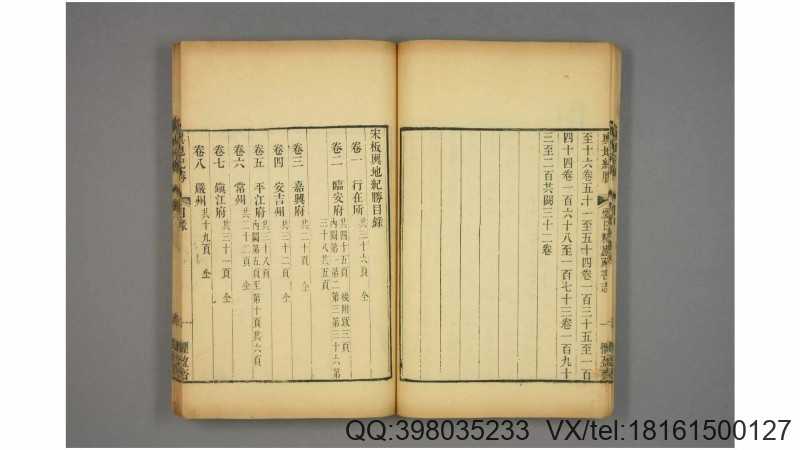 至十六卷五十一至五十四卷一百三十五至一百
四十四卷一百六十八至一百七十三卷一百九十
三至二百共闕三十二卷
宋板輿地紀勝目錄
卷一 行在所 共三十六頁 仝
卷二 臨安府 共四十五頁 後附跋三頁 內闕第一第二第三第三十六第三十八共五頁
卷三 嘉興府 共二十頁 仝
卷四 安吉州 共三十二頁 仝
卷五 平江府 共三十八頁 內闕第五頁至第十頁共六頁
卷六 常州 共二十二頁 仝
卷七 鎭江府 共三十一頁 仝
卷八 嚴州 共十九頁 仝
輿地紀勝
目錄
QQ:398035233 VX/tel:18161500127